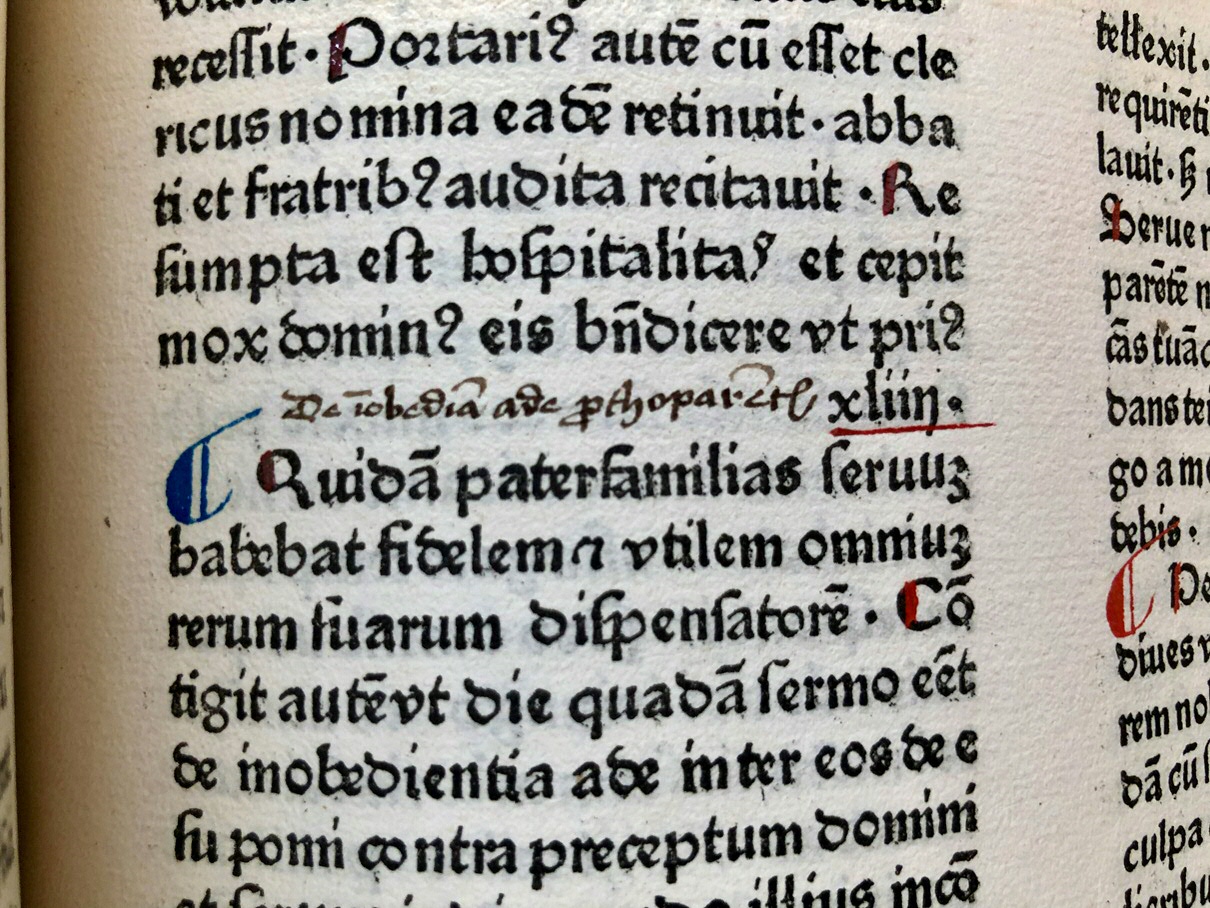 recessit · Portariꝰ autē cū esset cle
ricus nomina eadē retinuit · abba
ti et fratribꝰ audita recitauit · Re
sumpta est hospitalitaˢ et cepit
mox dominꝰ eis bn̄dicere vt priꝰ
De īobediā ade ꝓthoparētis xliiij·
Quidā paterfamilias seruuꝫ
habebat fidelem ⁊ vtilem omniuꝫ
rerum suarum dispensatorē · Cō
tigit autē vt die quadā sermo eēt
de inobedientia ade inter eos de e
su pomi contra preceptum domini
illius incō
tellexit·
requirēti
lauit·
Serue
parētē
cās tuā
dans tei
go a me
debis·
De
diues
rem no
dā cū
culpa